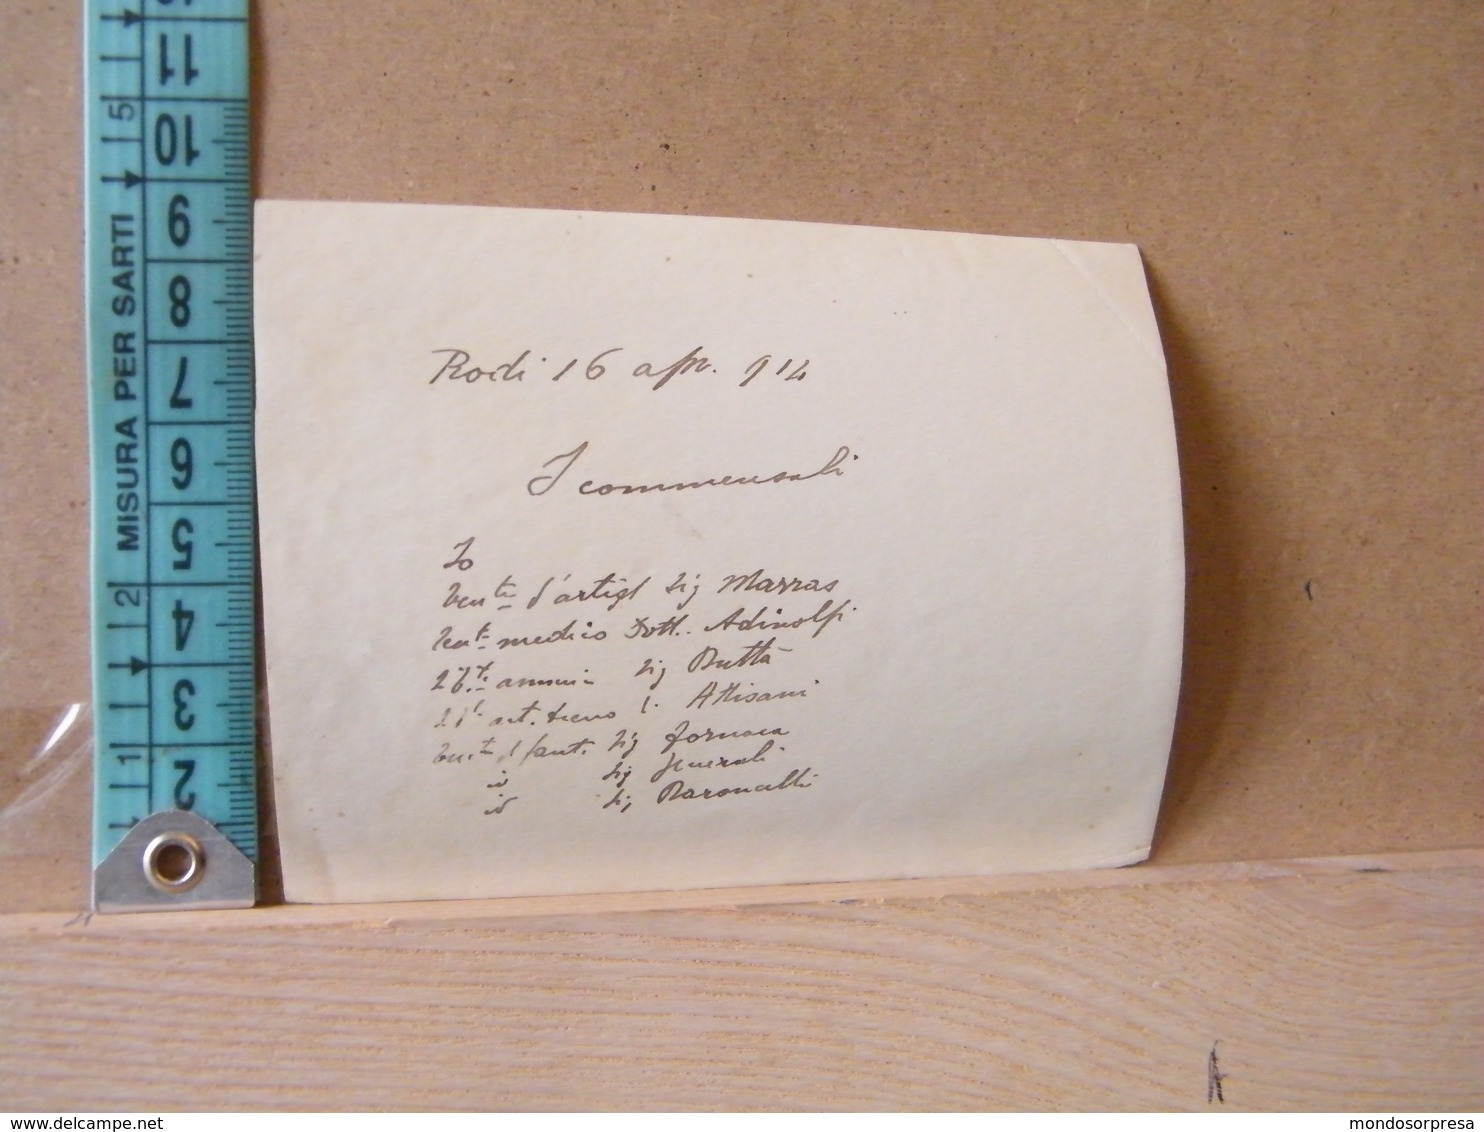 11
10
9
8
7
6
5
4
3
2
5
2
1
MISURA PER SARTI
Rodi 16 apr. 914
I commensali
Io
Ten.te d'artigl Sig Marras
Ten.te medico Dott. Adinolfi
Sig Buttà
art. treno Attisani
Ten.te d fant. Sig Fornaca
id Sig Generali
id Sig Baroncelli
delcampe.net
mondosorpresa